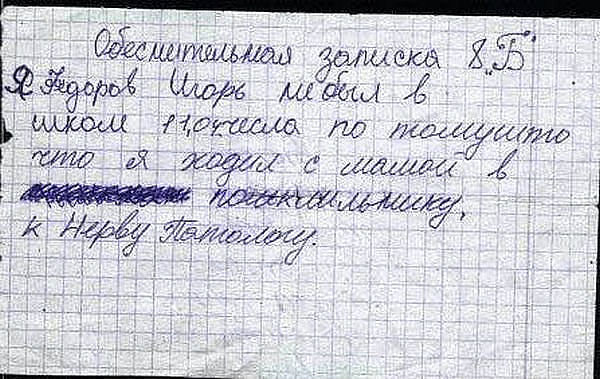 Обеснительная записка 8 "Б"
Я Федоров Игорь небыл в
школ 11,04 числа по томушто
что я ходил с мамой в
к Нерву Патологу.